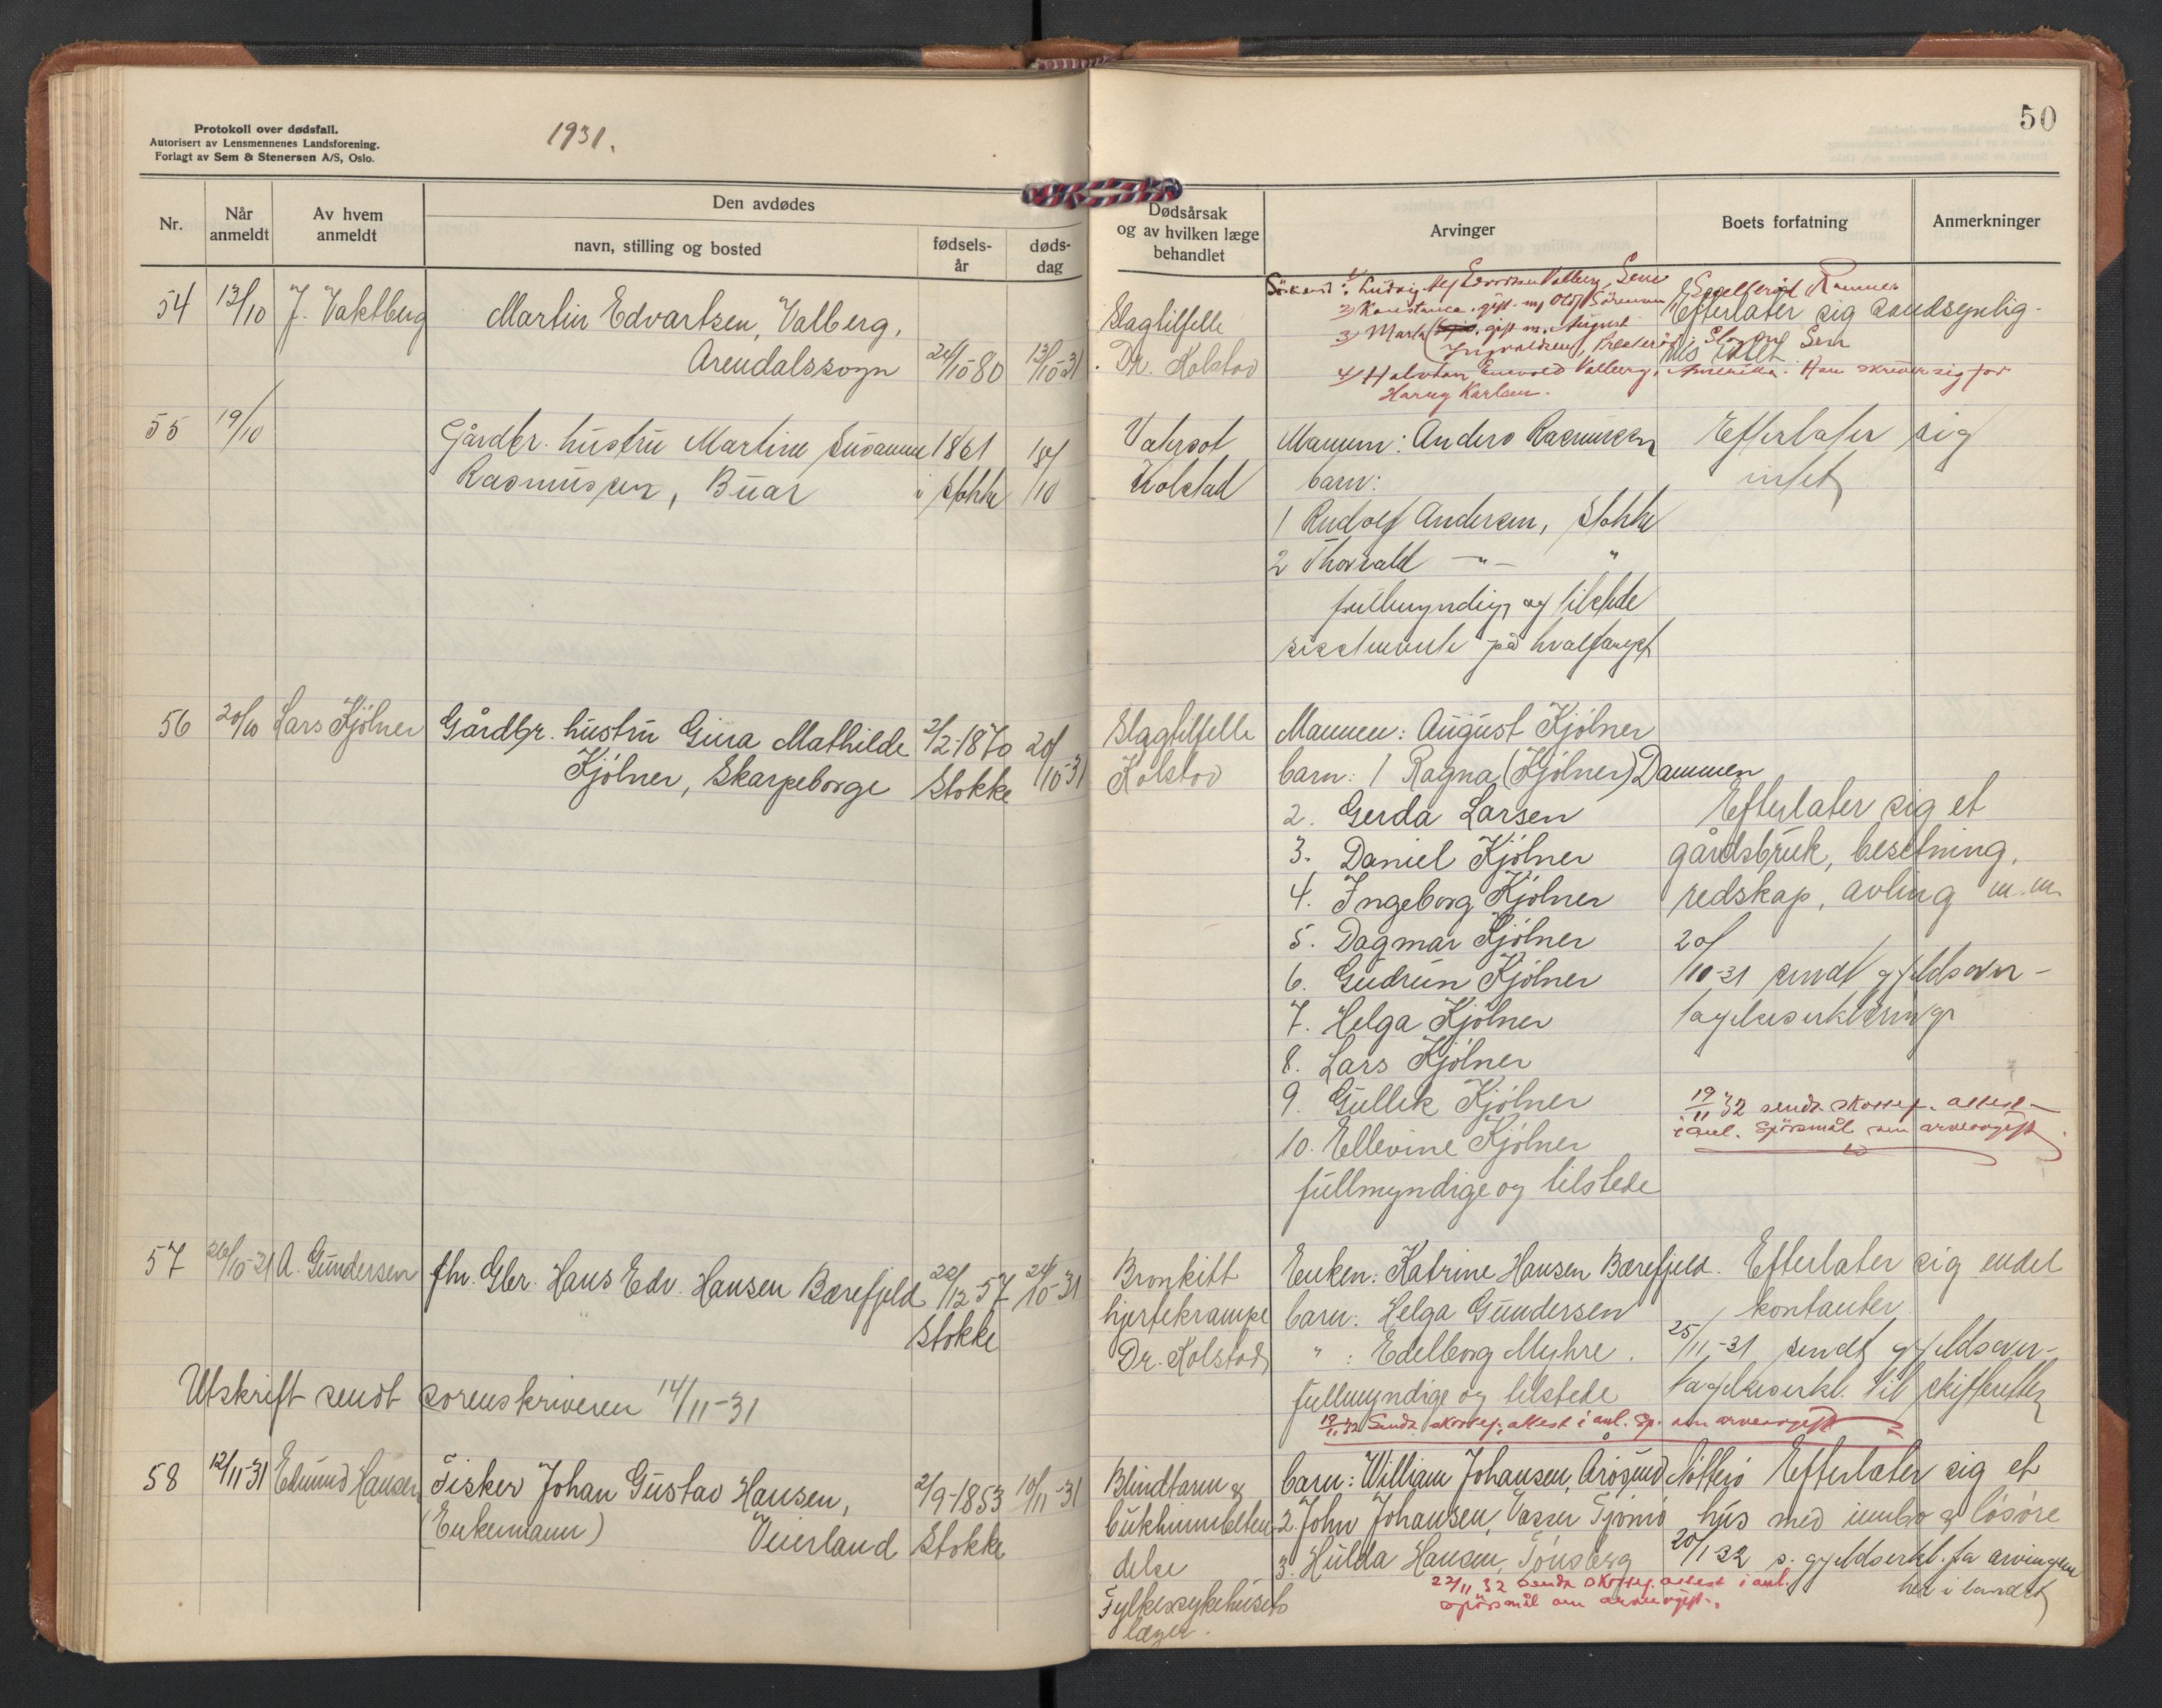 Protokoll over dødsfall.
Autorisert av Lensmennenes Landsforening.
Forlagt av Sem & Stenersen A/S, Oslo.
1931.
50
Nr.
Når anmeldt
Av hvem anmeldt
Den avdødes
navn, stilling og bosted
fødsels-år
døds-dag
Dødsårsak og av hvilken læge behandlet
Arvinger
Boets forfatning
Anmerkninger
54 13/10 J. Vaktberg Martin Edvartsen, Valberg,
Arendalssogn 24/10-80 13/10-31
Slagtilfelle
Dr. Kolstad
1/ Ludvig Valberg, Sem
2) Konstance, gift m/ Olaf Sörensen
3) Marta gift m. August
Ingvaldsen, Slagen Sem
4) Halvdan Valberg, Amerika. Han skriver sig for
Harry Karlsen.
Efterlater sig sandsynlig-
vis intet
55 19/10 Gårdbr. hustru Martine Susanne 1861 18/
Rasmussen, Buar i Stokke /10
Vatersot
Kolstad
Mannen: Anders Rasmussen
barn:
1 Rudolf Andersen, Stokke
2 Thorvald —"— "
fullmyndig og tilstede
sistnevnte på hvalfangst
Efterlater sig
intet
56 20/10 Lars Kjölner Gårdbr. hustru Gina Mathilde 2/2-1870 20/
Kjölner, Skarpeborge Stokke /10-31
Slagtilfelle
Kolstad
Mannen: August Kjölner
barn: 1 Ragna (Kjölner) Dammen
2. Gerda Larsen
3. Daniel Kjölner
4. Ingeborg Kjölner
5. Dagmar Kjölner
6. Gudrun Kjölner
7. Helga Kjölner
8. Lars Kjölner
9. Gullik Kjölner
10. Ellevine Kjölner
fullmyndige og tilstede
Efterlater sig et
gårdsbruk, besetning,
redskap, avling m.m.
20/
/10-31 sendt gjeldsover-
tagelseserklæring
19/11 32 sendt skattef. attest
i anl. spörsmål om arveavgift
57 26/10-31 A. Gundersen fhv. Gbr. Hans Edv. Hansen Bærefjeld 22/12 57 24/10-31
Stokke
Bronkitt
hjertekrampe
Dr. Kolstad
Enken: Katrine Hansen Bærefjeld.
barn: Helga Gundersen
" : Edelborg Myhre.
fullmyndige og tilstede
19/11 32 Sendt skattef. attest i anl. sp. om arveavgift
Efterlater sig endel
kontanter
25/11-31 sendt gjeldsover-
tagelseserkl. til skifteretten
Utskrift sendt sorenskriveren 14/11-31
58 12/11-31 Edmund Hansen Fisker Johan Gustav Hansen, 2/9-1853 10/11-31
(Enkemann) Veierland Stokke
Blindtarm &
bukhinnebeten-
delse
Fylkessykehusets
læger.
barn: William Johansen, Årøsund Nøtterø
2. John Johansen, Vasser Tjömö
3. Hulda Hansen, Tönsberg
22/11 32 sendt skattef. attest i anl.
spörsmål om arveavgift.
Efterlater sig et
hus med innbo & lösöre
20/1-32 s. gjeldserkl. fra arvingene
her i landet